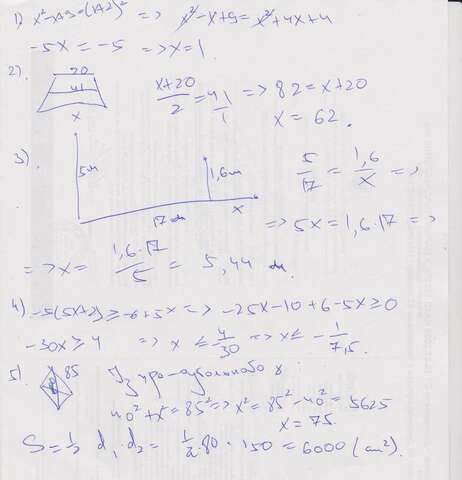 1) x²-x+9=(x+2)² => x²-x+9=x²+4x+4
-5x = -5 => x=1.
2) 20 41 x (x+20)/2 = 41/1 => 82=x+20
x = 62.
3) 5м 1,6м 17 м x 5/17 = 1,6/x =>
=> 5x = 1,6·17 =>
=> x = (1,6·17)/5 = 5,44 м
4) -5(5x+2) ≥ -6+5x => -25x-10+6-5x≥0
-30x ≥ 4 => x ≤ -4/30 => x ≤ -1/7,5.
5) 85 Из
40²+x²=85² => x²=85²-40²=5625
x=75.
S = 1/2 d₁·d₂ = 1/2·80·150 = 6000 (см²).